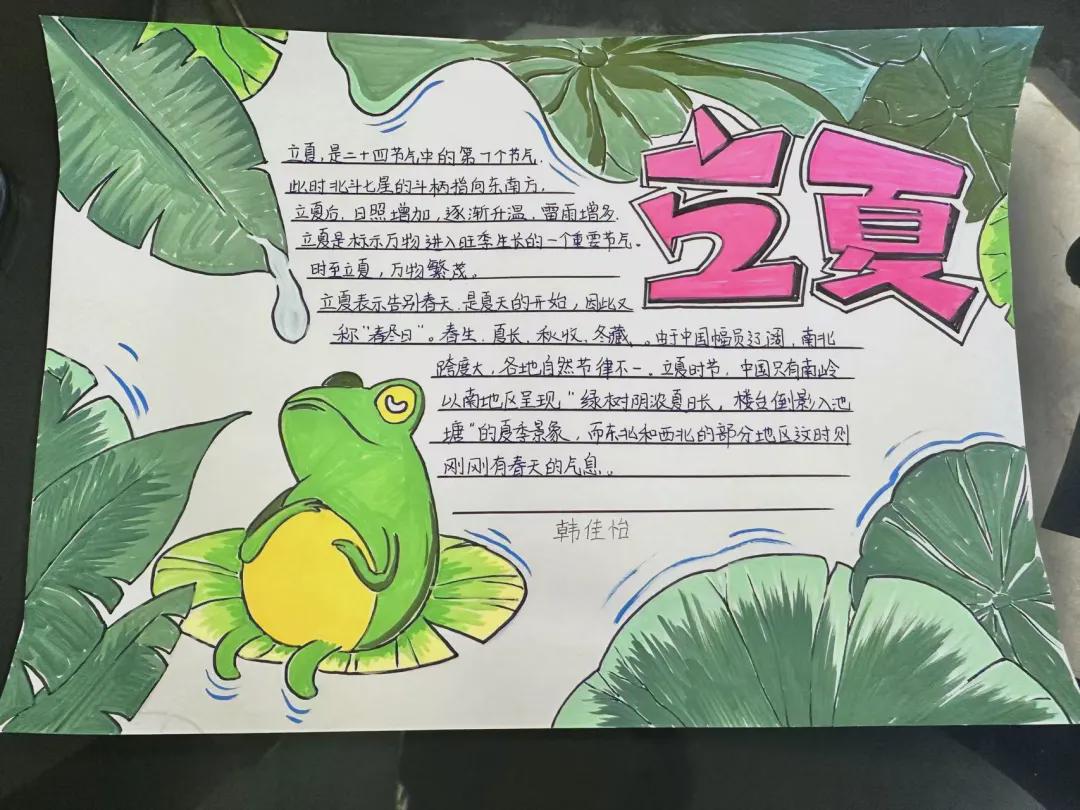 立夏
立夏,是二十四节气中的第7个节气.
此时北斗七星的斗柄指向东南方,
立夏后,日照增加,逐渐升温,雷雨增多.
立夏是标示万物进入旺季生长的一个重要节气。
时至立夏,万物繁茂。
立夏表示告别春天.是夏天的开始,因此又
称"春冬日"。春生.夏长.秋收.冬藏.。由于中国幅员辽阔,南北
跨度大,各地自然节律不一。立夏时节,中国只有南岭
以南地区呈现"绿树阴浓夏日长,楼台倒影入池
塘"的夏季景象,而东北和西北的部分地区这时则
刚刚有春天的气息.。
韩佳怡